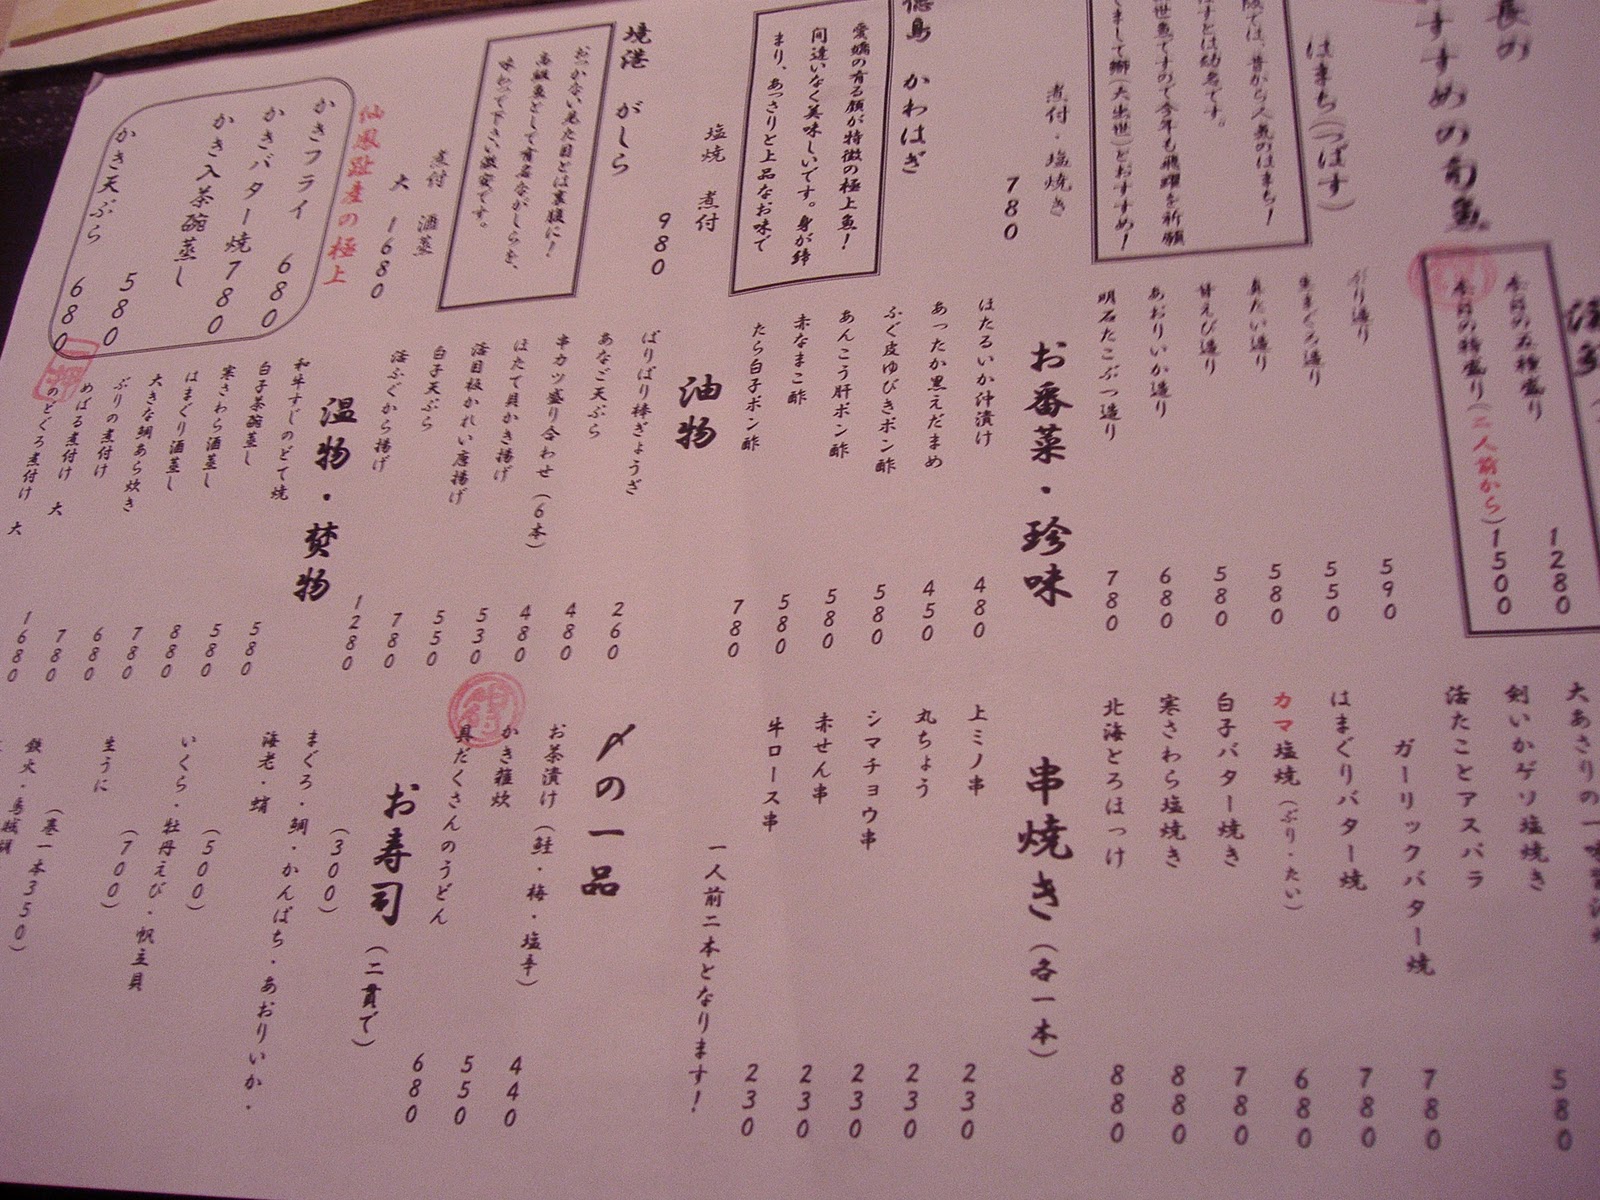 長の
すすめの旬魚
はまち(つばす)
世魚ですので今年も飛躍を祈願
まして鰤(大出世)とおすすめ!
煮付・塩焼き
780
徳島 かわはぎ
愛嬌の有る顔が特徴の極上魚!
間違いなく美味しいです。身が締
まり、あっさりと上品なお味で
塩焼 煮付
980
境港 がしら
おっかない見た目とは裏腹に!
高級魚として有名ながしらを、
味わって下さい激安です。
煮付 酒蒸
大 1680
仙鳳趾産の極上
かきフライ 680
かきバター焼 780
かき入茶碗蒸し 580
かき天ぷら 680
1280
特盛り(二人前から) 1500
ぶり造り 590
生まぐろ造り 550
真たい造り 580
甘えび造り 580
あおりいか造り 680
明石たこぶつ造り 780
お番菜・珍味
ほたるいか沖漬け 480
あったか黒えだまめ 450
ふぐ皮ゆびきポン酢 580
あんこう肝ポン酢 580
赤なまこ酢 580
たら白子ポン酢 780
油物
ぱりぱり棒ぎょうざ 260
あなご天ぷら 480
串カツ盛り合わせ(6本) 480
ほたて貝かき揚げ 530
活目板かれい唐揚げ 550
白子天ぷら 780
活ふぐから揚げ 1280
温物・焚物
和牛すじのどて焼 580
白子茶碗蒸し 580
寒さわら酒蒸し 880
はまぐり酒蒸し 780
大きな鯛あら炊き 680
ぶりの煮付け 780
めばる煮付け 大 1680
のどぐろ煮付け 大
大あさりの一味醤油焼
剣いかゲソ塩焼き 580
活たことアスパラ
ガーリックバター焼 780
はまぐりバター焼 780
カマ塩焼(ぶり・たい) 680
白子バター焼き 780
寒さわら塩焼き 880
北海とろほっけ 880
串焼き(各一本)
上ミノ串 230
丸ちょう 230
シマチョウ串 230
赤せん串 230
牛ロース串 230
一人前二本となります!
〆の一品
お茶漬け(鮭・梅・塩辛) 440
かき雑炊 550
具だくさんのうどん 680
お寿司(二貫で)
まぐろ・鯛・かんぱち・あおりいか・
海老・蛸 (300)
いくら・牡丹えび・帆立貝
(500)
生うに (700)
鉄火・烏賊納
(巻一本350)